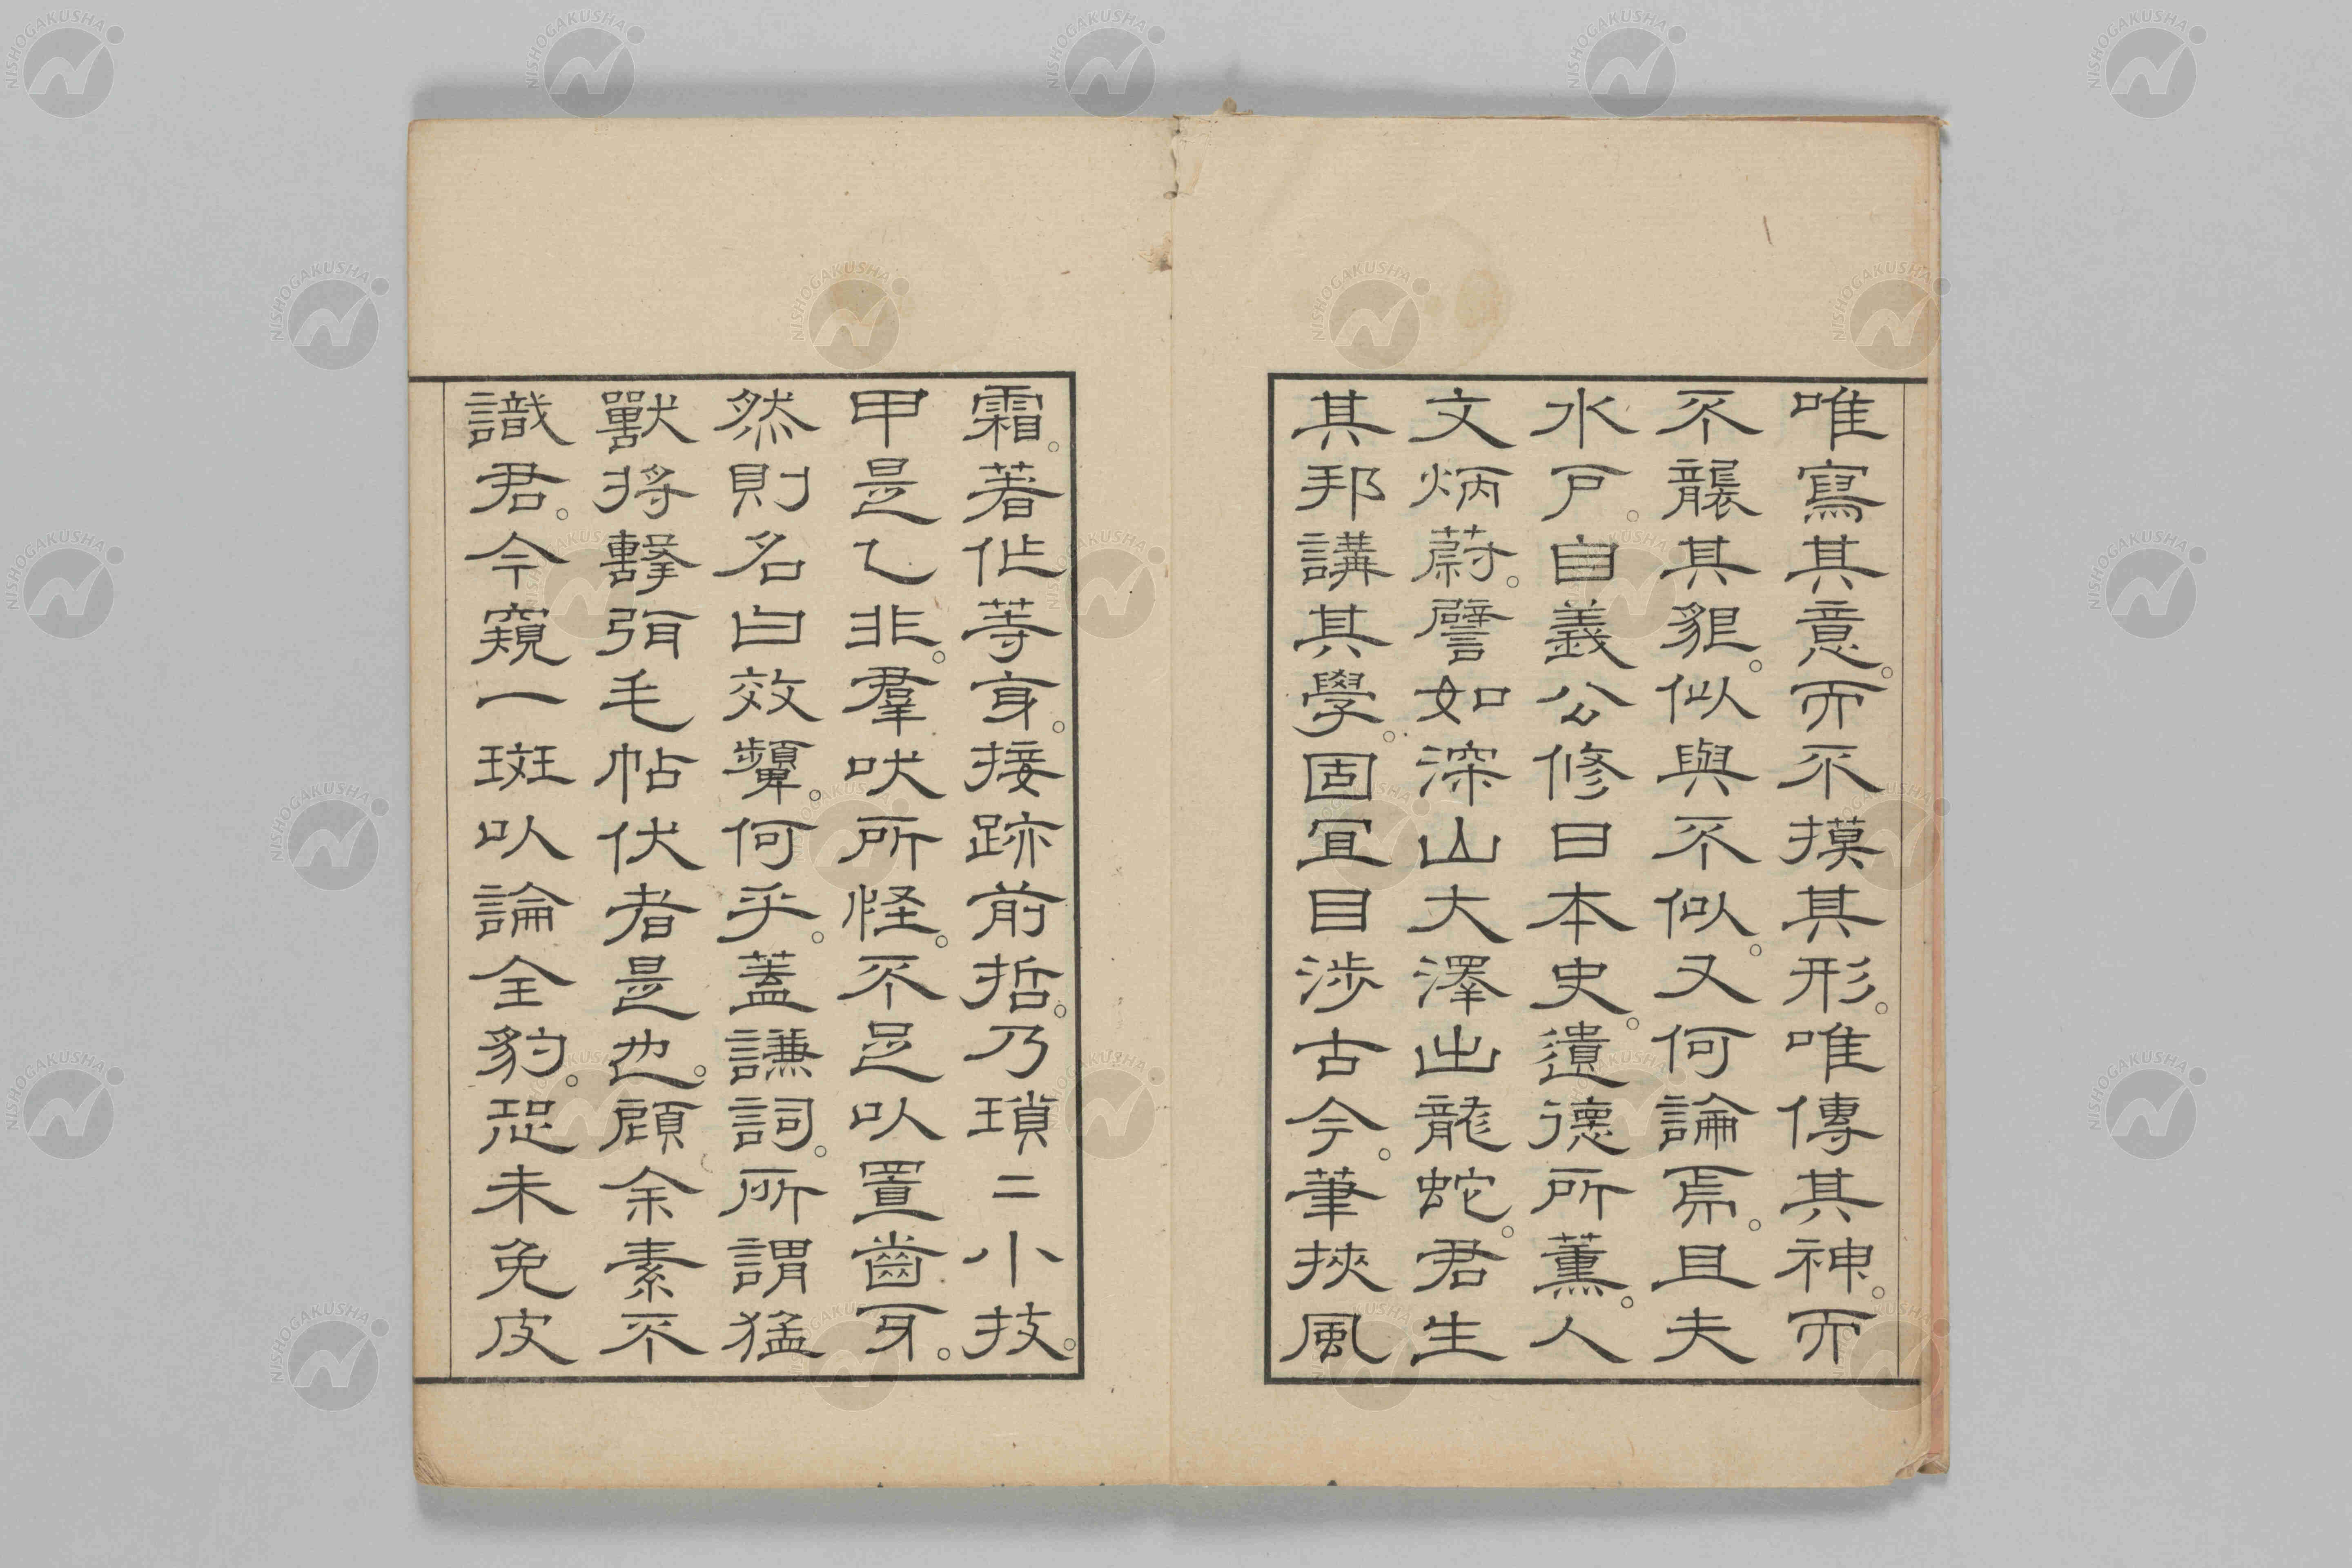 唯寫其意。而不摸其形。唯傳其神。而
不襲其貌。似與不似。又何論焉。且夫
水戶。自義公修日本史。遺德所薰。人
文炳蔚。譬如深山大澤出龍蛇。君生
其邦講其學。固宜目涉古今。筆挾風
霜。著作等身。接跡前哲。乃瑣二小技。
甲是乙非。羣吠所怪。不足以置齒牙。
然則名曰效顰。何乎。蓋謙詞。所謂猛
獸將擊弭毛帖伏者是也。顧余素不
識君。今窺一斑以論全豹。恐未免皮
NISHOGAKUSHA